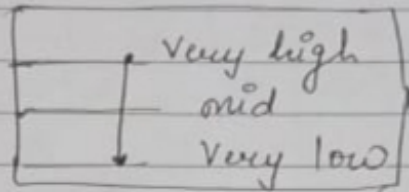 Very high
mid
Very low